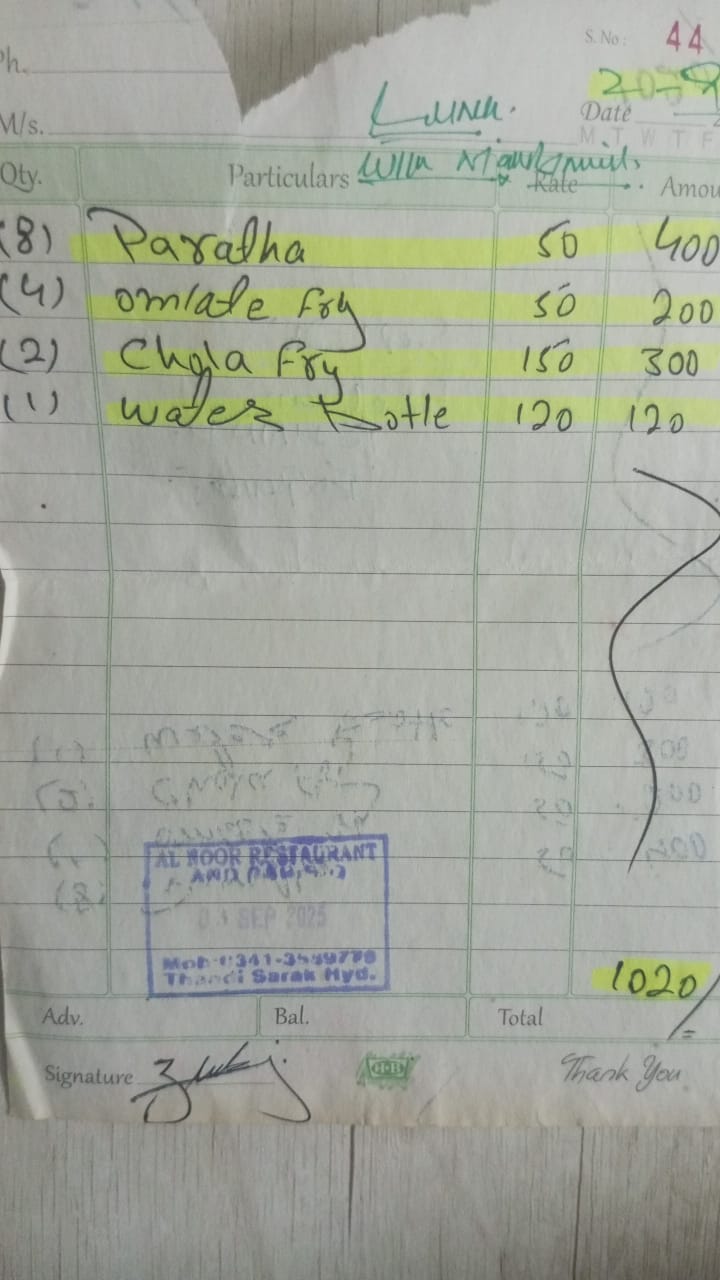 S. No: 44
Ph.
Date
M/s.
M T W T F
Qty. Particulars Rate Amou
(8) Paratha 50 400
(4) omlate fry 50 200
(2) Chola fry 150 300
(1) water Botle 120 120
AL NOOR RESTAURANT
AND
SEP 2025
Thandi Sarak Hyd.
1020/=
Adv. Bal. Total
Signature
Thank You